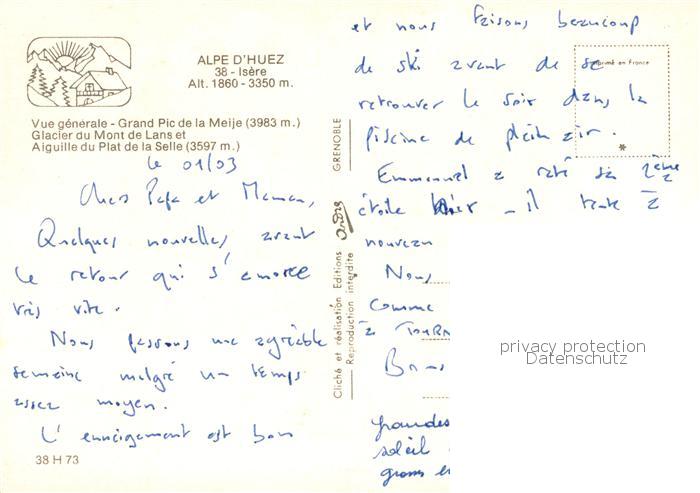 ALPE D'HUEZ
38 - Isère
Alt. 1860 - 3350 m.
Vue générale - Grand Pic de la Meije (3983 m.)
Glacier du Mont de Lans et
Aiguille du Plat de la Selle (3597 m.)
le 01/03
Chers Papa et Maman,
Quelques nouvelles avant
le retour qui s'amorce
très vite.
Nous passons une agréable
semaine malgré un temps
assez moyen.
L'enneigement est bon
38 H 73
GRENOBLE
Cliché et réalisation Editions André
Reproduction interdite
Imprimé en France
et nous faisons beaucoup
de ski avant de se
retrouver le soir dans la
piscine de plein air.
Emmanuel a raté sa 2ème
étoile hier - il tente à
nouveau
Nous
comme
à
Bons
grandes
soleil
gros
privacy protection
Datenschutz